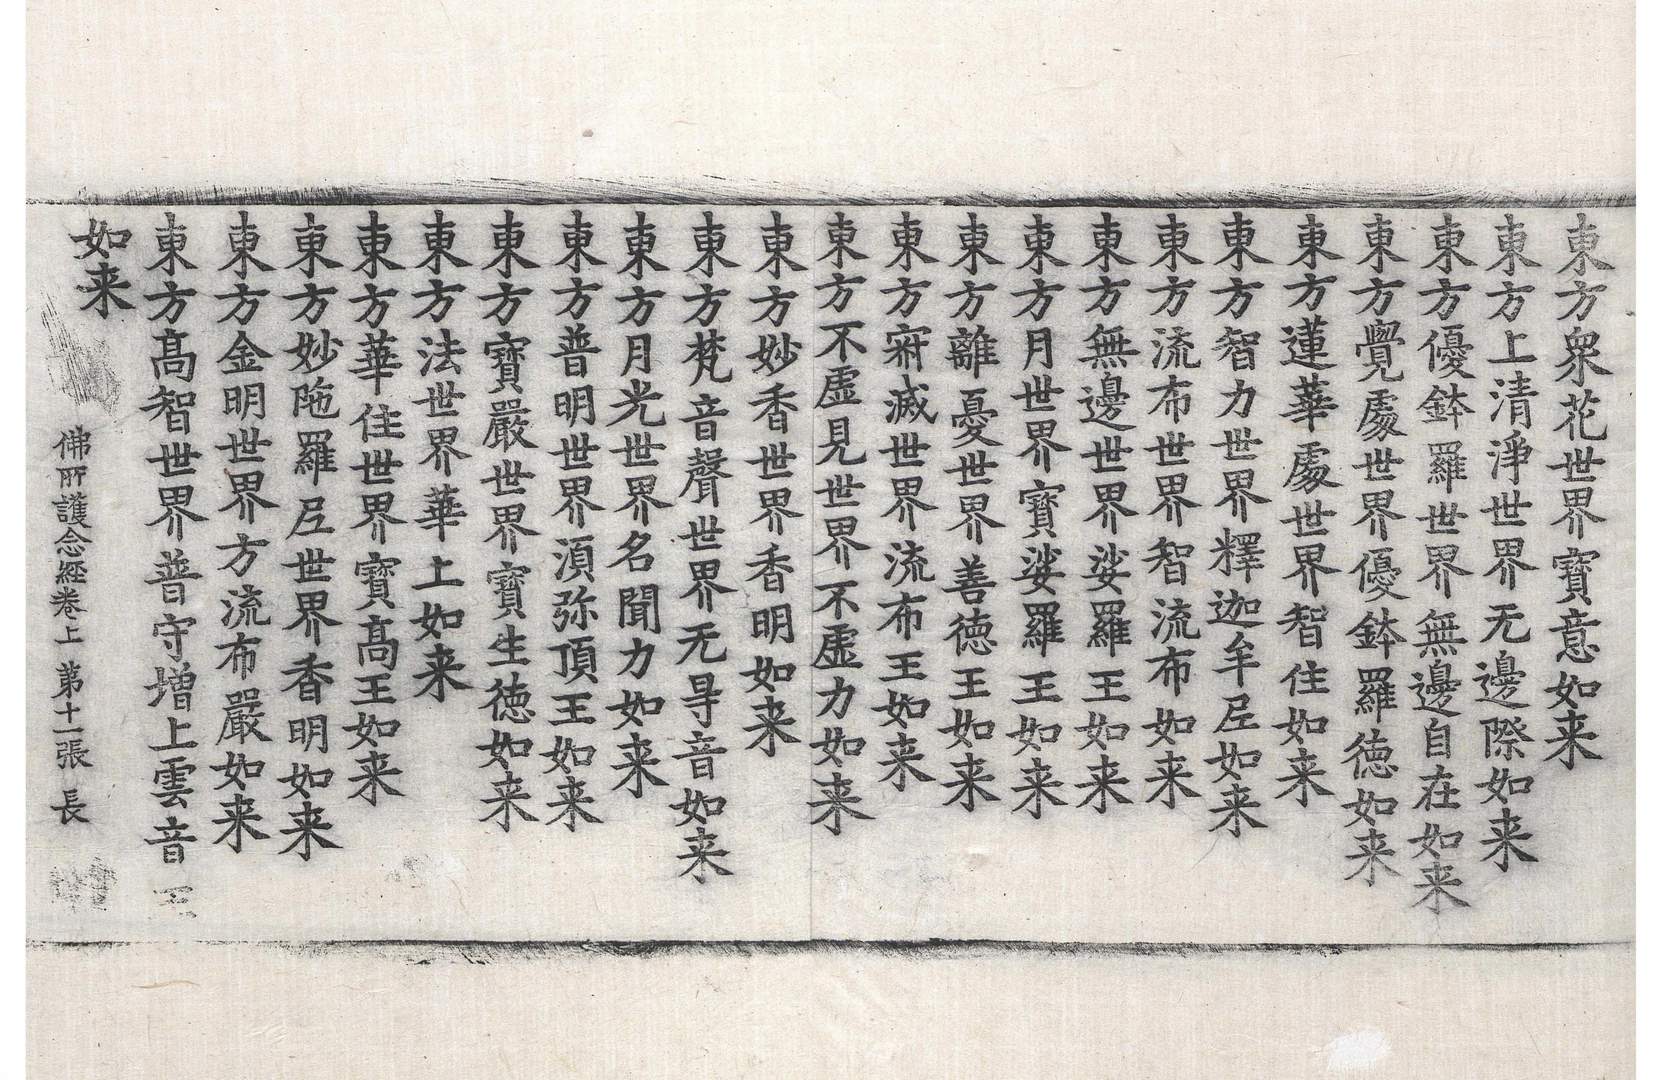 東方衆花世界寶意如来
東方上清淨世界无邊際如来
東方優鉢羅世界無邊自在如来
東方覺處世界優鉢羅德如来
東方蓮華處世界智住如来
東方智力世界釋迦牟尼如来
東方流布世界智流布如来
東方無邊世界娑羅王如来
東方月世界寶娑羅王如来
東方離憂世界善德王如来
東方寂滅世界流布王如来
東方不虛見世界不虛力如来
東方妙香世界香明如来
東方梵音聲世界无㝵音如来
東方月光世界名聞力如来
東方普明世界湏弥頂王如来
東方寶嚴世界寶生德如来
東方法世界華上如来
東方華住世界寶髙王如来
東方妙陁羅尼世界香明如来
東方金明世界方流布嚴如来
東方髙智世界普守增上雲音王
如来
佛所護念經卷上 第十一張 長